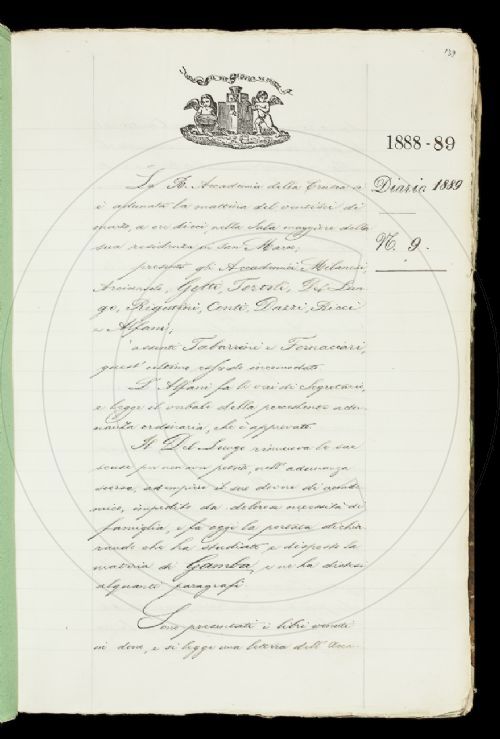 139
1888-89
Diario 1889
N. 9.
La R. Accademia della Crusca si
è adunata la mattina del ventisei di
marzo, a ore dieci, nella Sala maggiore della
sua residenza in San Marco;
presenti gli Accademici Milanesi,
Arciconsolo, Gotti, Tortoli, Del Lun-
go, Rigutini, Conti, Dazzi, Ricci
e Alfani;
assenti Tabarrini e Fornaciari,
quest'ultimo essendo incomodato.
L'Alfani fa le veci di Segretario,
e legge il verbale della precedente adu-
nanza ordinaria, che è approvato.
Il Del Lungo rinnova le sue
scuse per non aver potuto, nell'adunanza
scorsa, adempire il suo dovere di accade-
mico, impedito da dolorosa necessità di
famiglia, e fa oggi la portata dichia-
rando che ha studiato e disposto la
materia di Gamba, e ne ha distesi
alquanti paragrafi.
Sono presentati i libri venuti
in dono, e si legge una lettera dell'Acca-